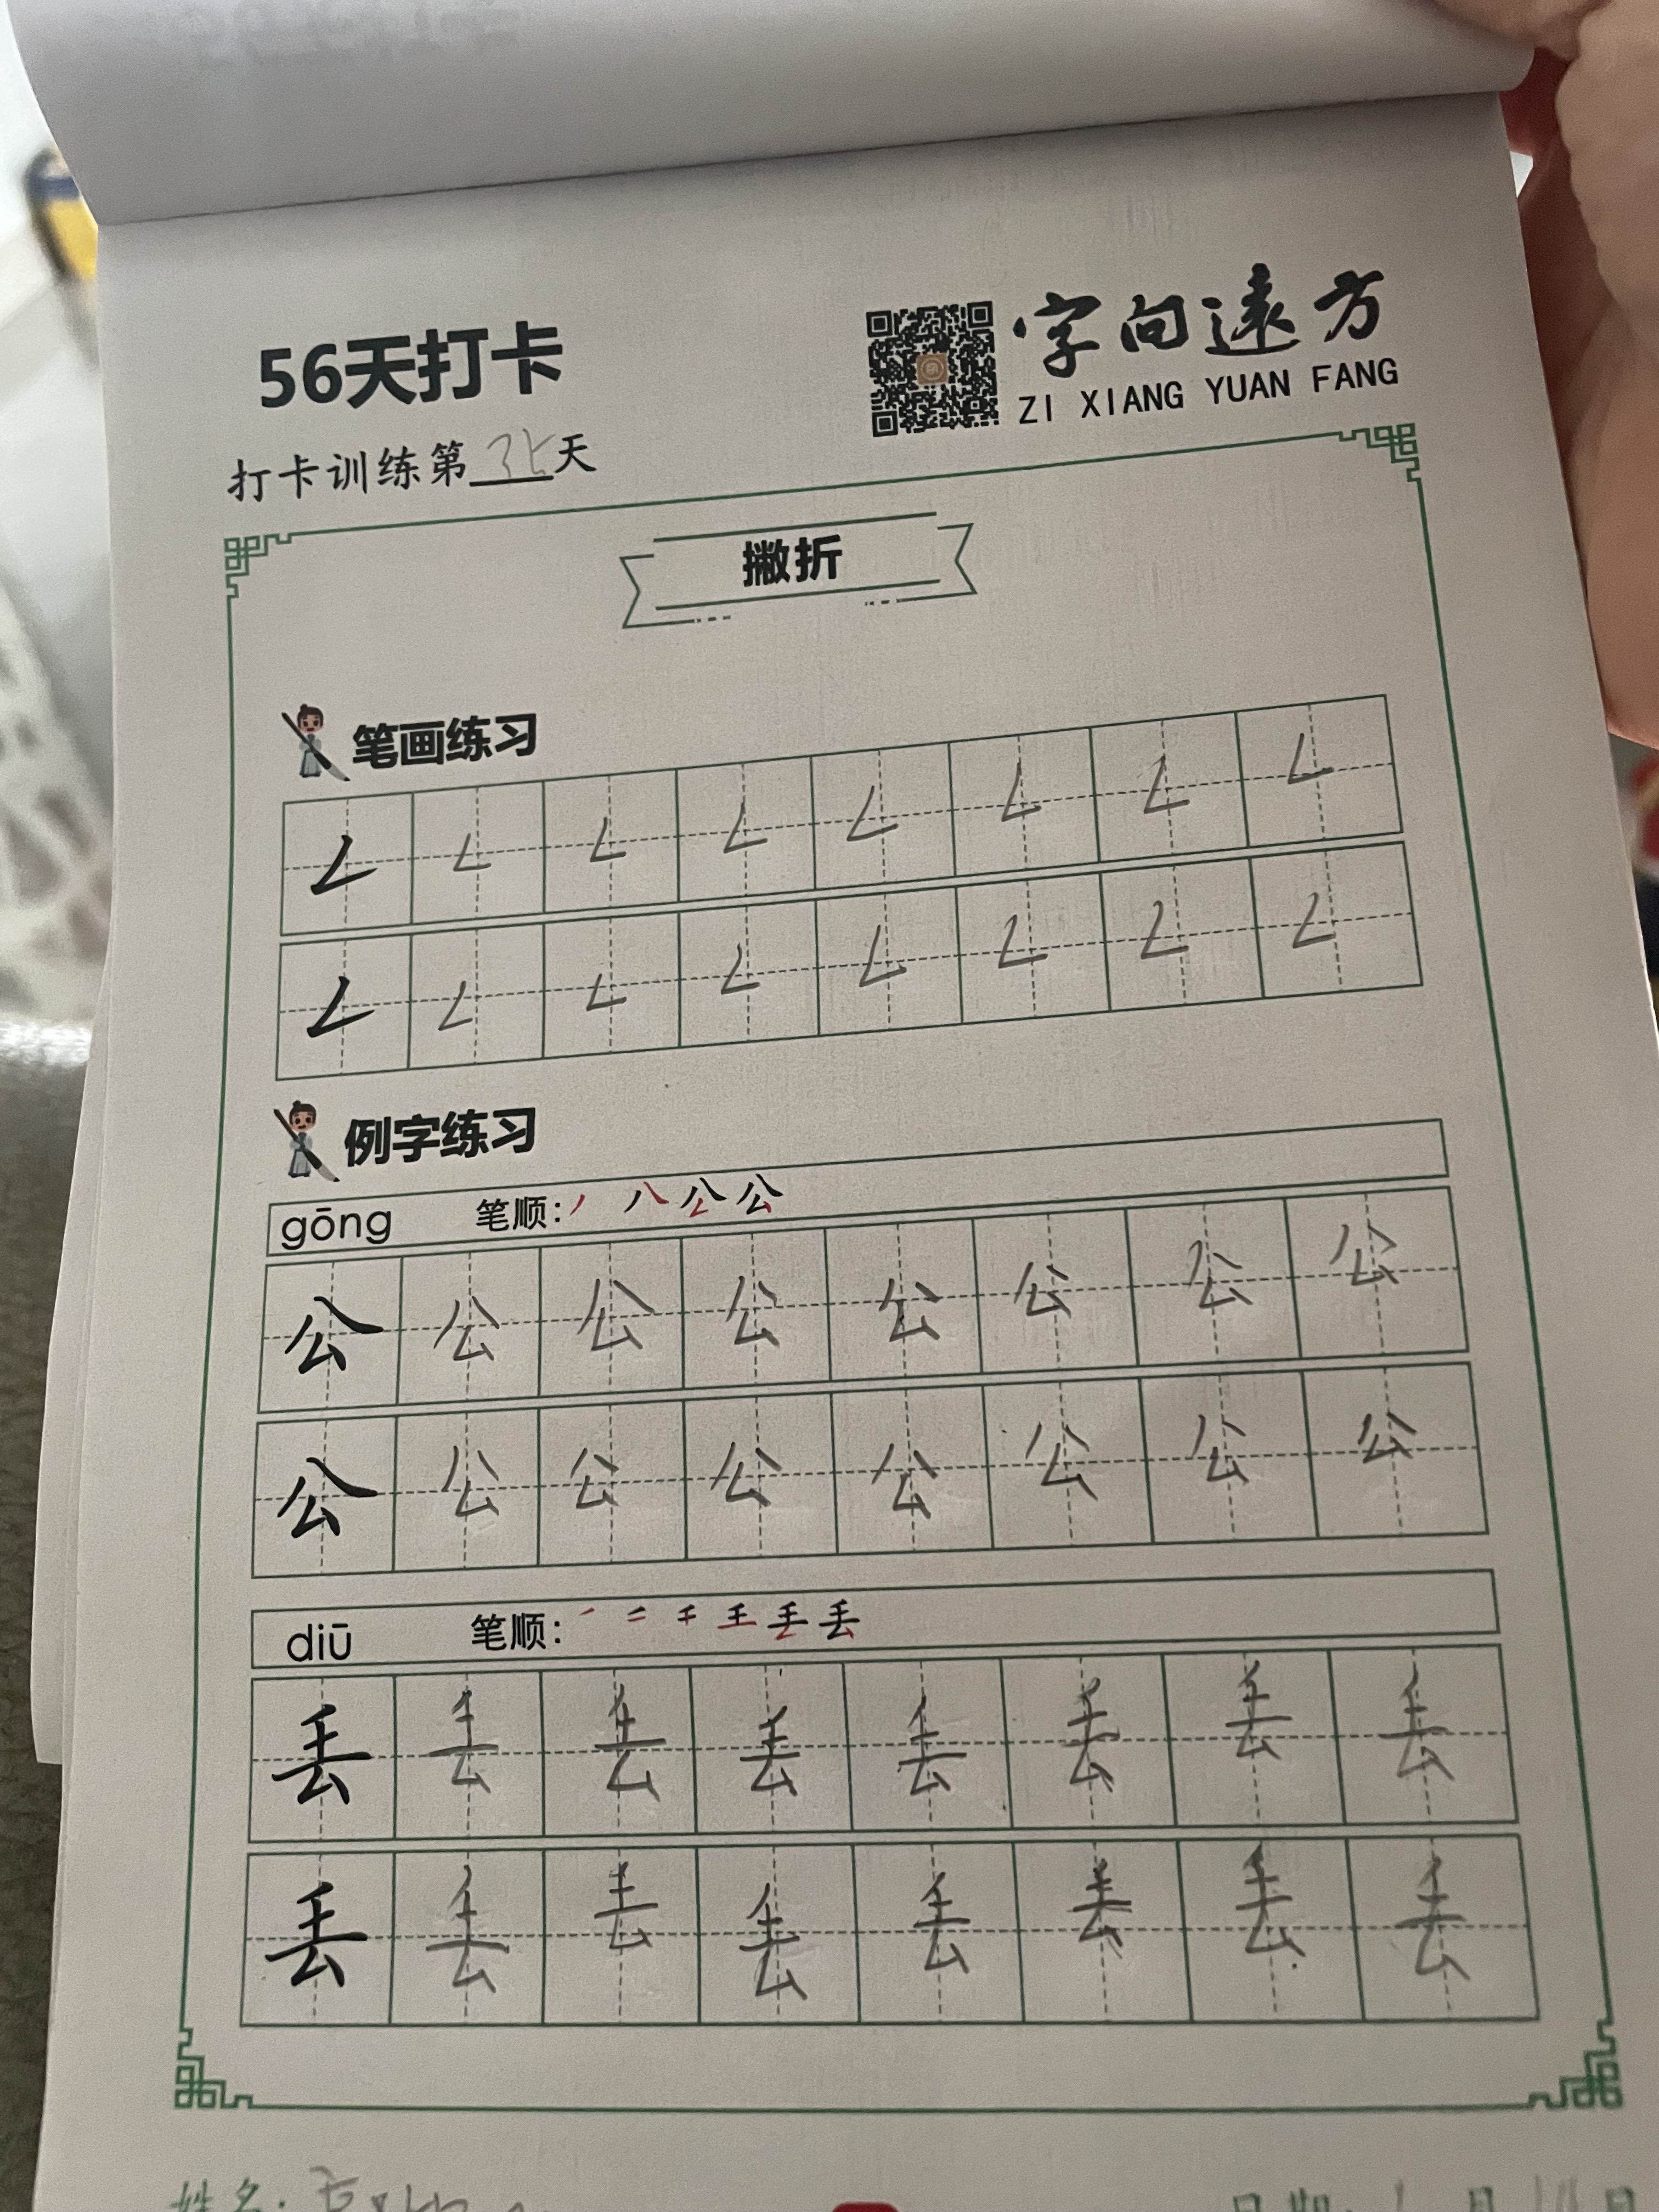 56天打卡
字向远方
ZI XIANG YUAN FANG
打卡训练第 天
撇折
笔画练习
𠃋 𠃋 𠃋 𠃋 𠃋 𠃋 𠃋 𠃋
𠃋 𠃋 𠃋 𠃋 𠃋 𠃋 𠃋 𠃋
例字练习
gōng 笔顺: 丿 八 公 公
公 公 公 公 公 公 公 公
公 公 公 公 公 公 公 公
diū 笔顺: 丢
丢 丢 丢 丢 丢 丢 丢 丢
丢 丢 丢 丢 丢 丢 丢 丢
姓名: 日期: 月 日